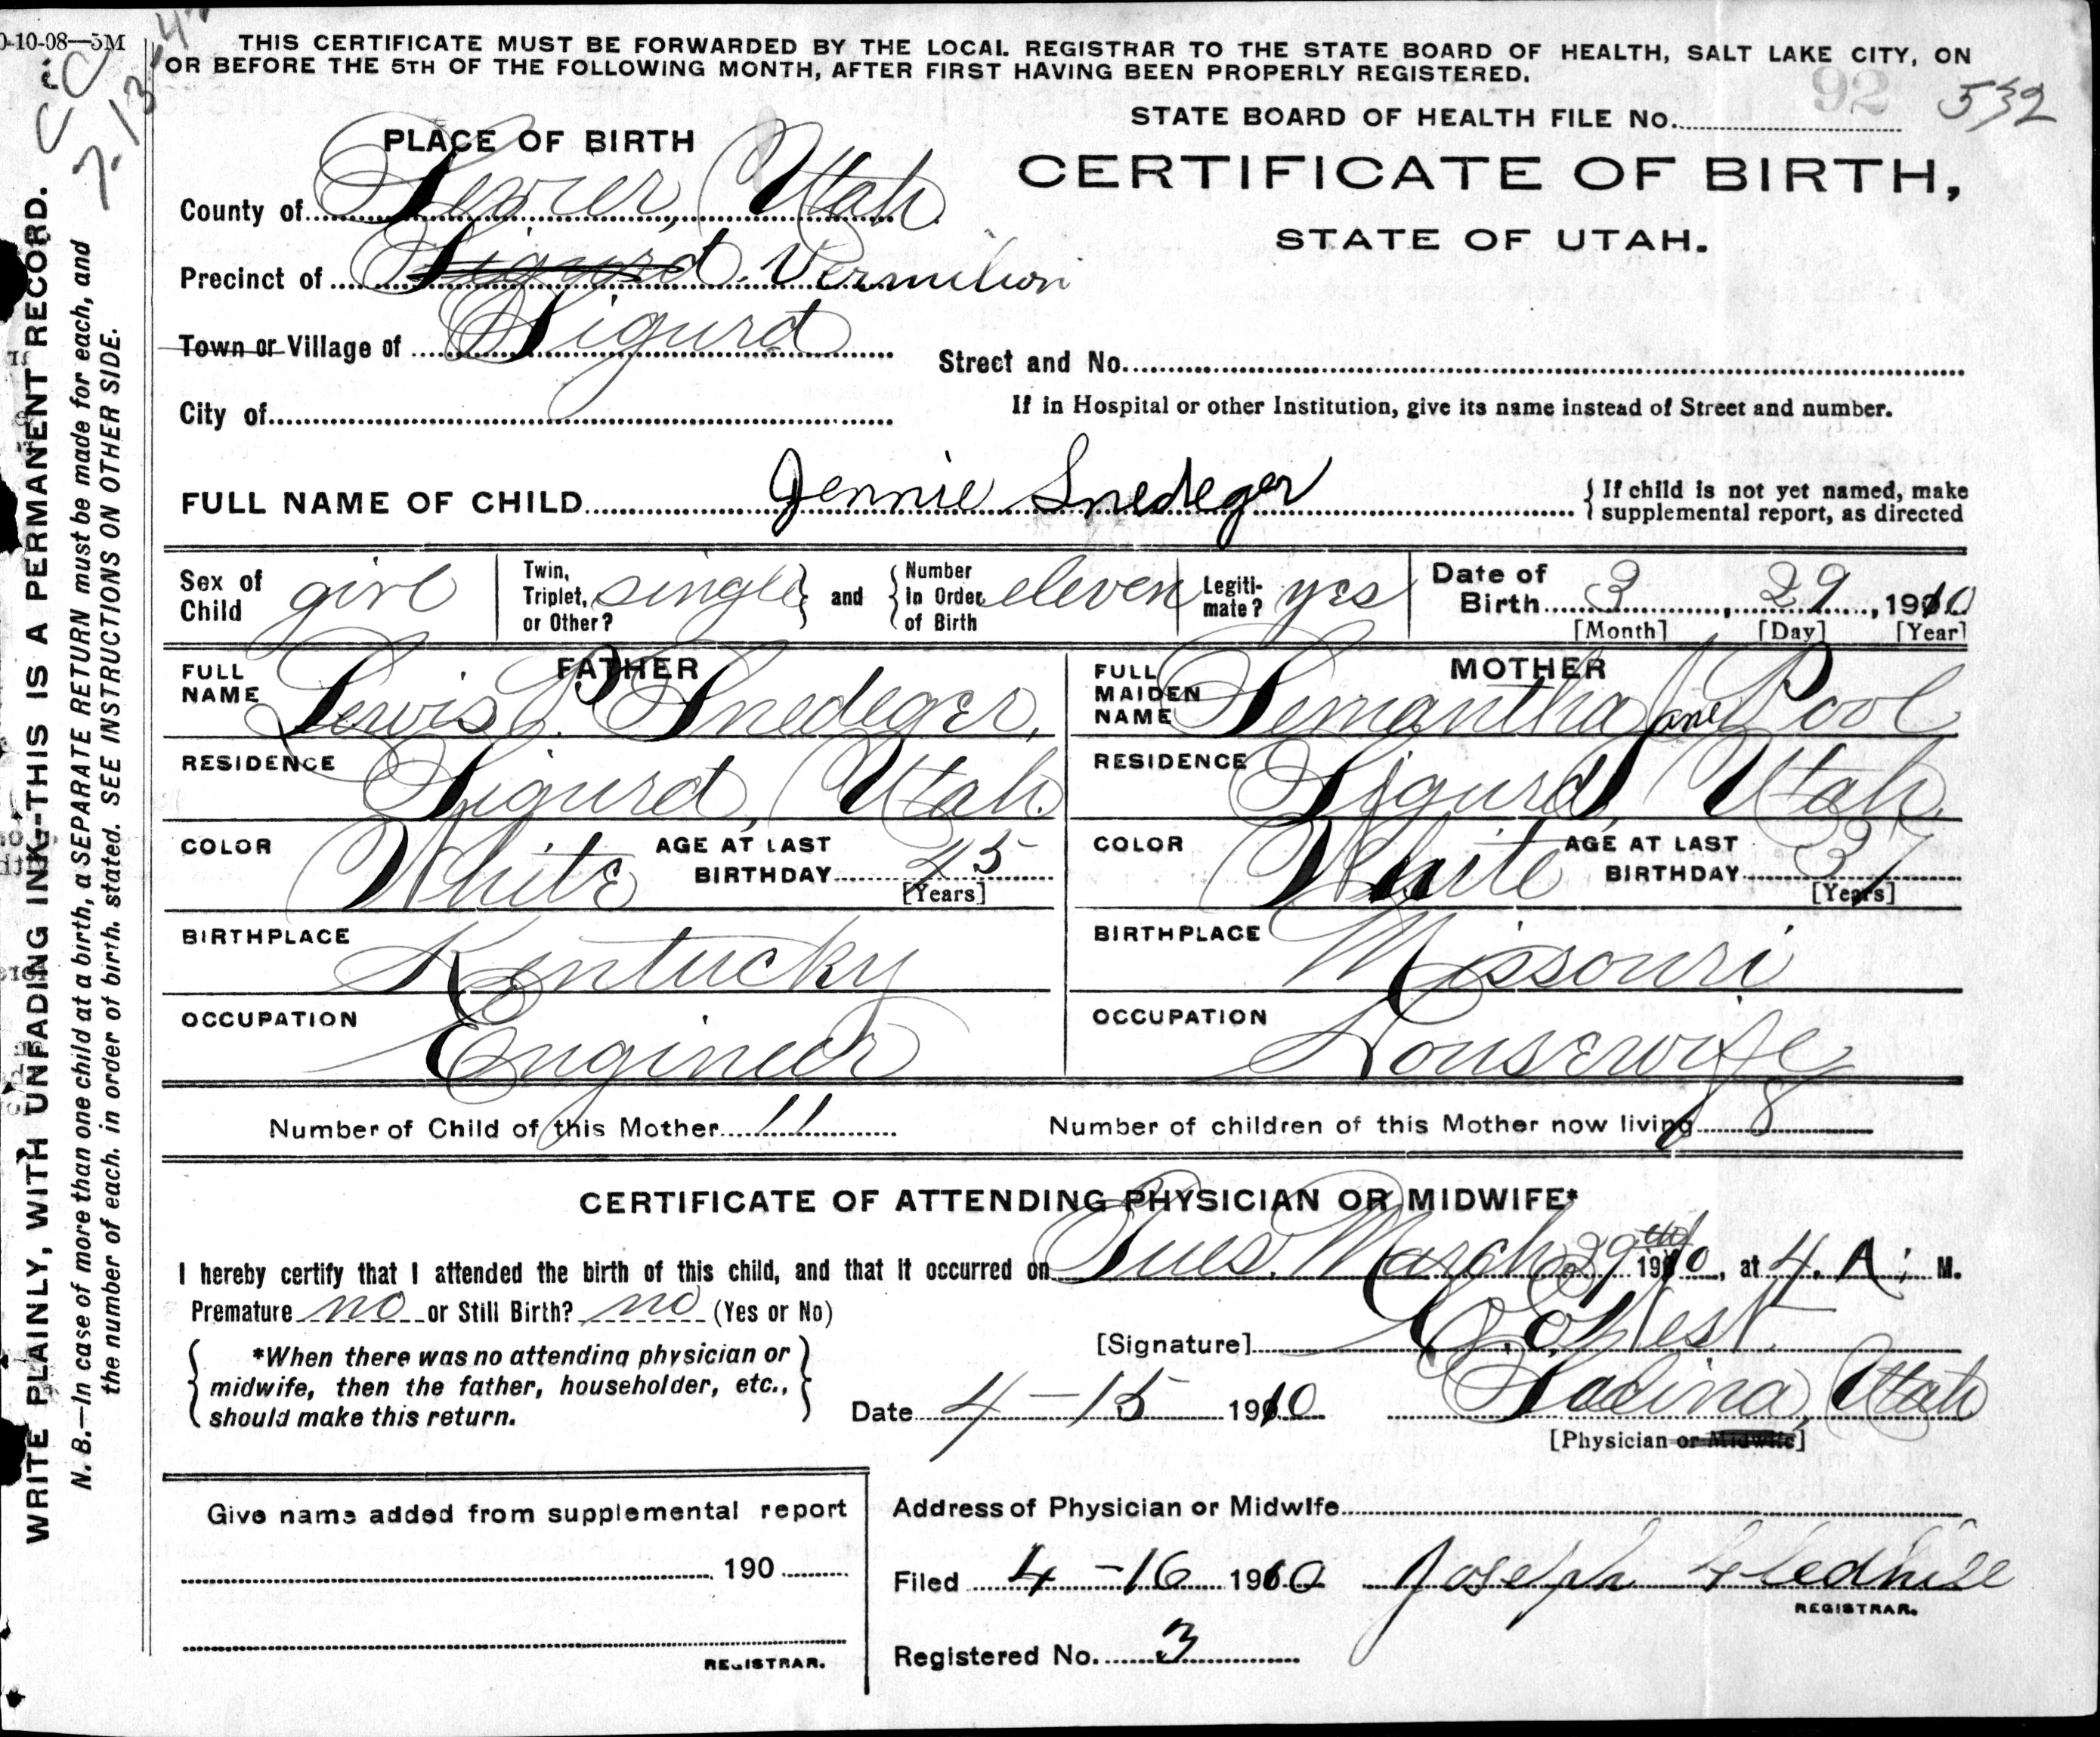 0-10-08—5M
THIS CERTIFICATE MUST BE FORWARDED BY THE LOCAL REGISTRAR TO THE STATE BOARD OF HEALTH, SALT LAKE CITY, ON
OR BEFORE THE 5TH OF THE FOLLOWING MONTH, AFTER FIRST HAVING BEEN PROPERLY REGISTERED.
92 532
STATE BOARD OF HEALTH FILE No.
PLACE OF BIRTH
CERTIFICATE OF BIRTH,
STATE OF UTAH.
County of Sevier, Utah.
Precinct of Sigurd. Vermilion
Town or Village of Sigurd
Street and No.
City of
If in Hospital or other Institution, give its name instead of Street and number.
FULL NAME OF CHILD Jennie Snedeger
{ If child is not yet named, make
supplemental report, as directed
Sex of Child girl
Twin, Triplet, or Other? single } and { Number In Order of Birth eleven
Legiti- mate? yes
Date of Birth 3, 29, 1910
[Month] [Day] [Year]
FATHER
FULL NAME Lewis P. Snedeger,
MOTHER
FULL MAIDEN NAME Semantha Jane Pool
RESIDENCE Sigurd, Utah.
RESIDENCE Sigurd, Utah.
COLOR White AGE AT LAST BIRTHDAY 45 [Years]
COLOR White AGE AT LAST BIRTHDAY 37 [Years]
BIRTHPLACE Kentucky
BIRTHPLACE Missouri
OCCUPATION Engineer
OCCUPATION Housewife
Number of Child of this Mother 11
Number of children of this Mother now living 8
CERTIFICATE OF ATTENDING PHYSICIAN OR MIDWIFE*
I hereby certify that I attended the birth of this child, and that it occurred on Tues. March 29th 1910, at 4. A. M.
Premature no or Still Birth? no (Yes or No)
[Signature] West
*When there was no attending physician or
midwife, then the father, householder, etc.,
should make this return.
Date 4-15 1910
Salina, Utah
[Physician or Midwife]
Give name added from supplemental report
190
REGISTRAR.
Address of Physician or Midwife
Filed 4-16 1910 Joseph Gledhill
REGISTRAR.
Registered No. 3
WRITE PLAINLY, WITH UNFADING INK—THIS IS A PERMANENT RECORD.
N. B.—In case of more than one child at a birth, a SEPARATE RETURN must be made for each, and
the number of each, in order of birth, stated. SEE INSTRUCTIONS ON OTHER SIDE.